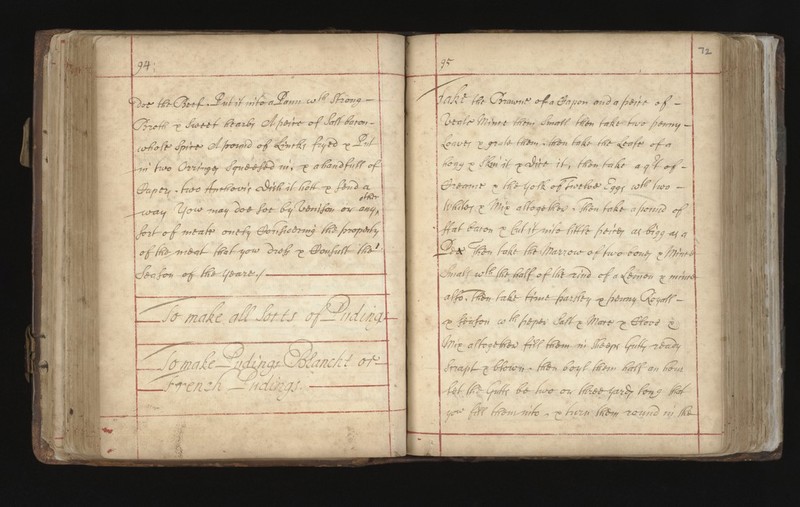 94
doe the Beef. Put it into a Pann wth Strong
Broth & Sweet hearbs A peice of Salt bacon
whole Spice A pound of fryed & Put
in two Orringes Squeesed in, & a handfull of
Capers. two Dish it hott & Send a
way Yow may doe soe by Venison or any other
sort of meate onely Considering the property
of the meat that yow dress & Consult the
Season of the Yeare //
To make all Sorts of Puding
To make Pudings Blancht or
French Pudings
95
72
Take the Brawne of a Capon and a peice of
Veale Mince them Small then take two penny
Loaves & grate them. then take the Leafe of a
hogg & Skin it & Dice it, then take a qt of
Creame & the yolk of Twelve Eggs wth two
Whites & Mix altogether. Then take a pound of
ffat bacon & Cut it into little peices as bigg as a
Pea Then take the Marrow of two bones & Mince
Small wth the half of the rind of a Lemon & mince
also. then take time parsley & penny Royall
& season wth peper Salt & Mace & Clove &
Mix altogether fill them in Sheeps Guts ready
Scrapt & blown. then boyl them half an hour
let the Gutts be two or three yards long that
yow fill them into. & turn them round in the